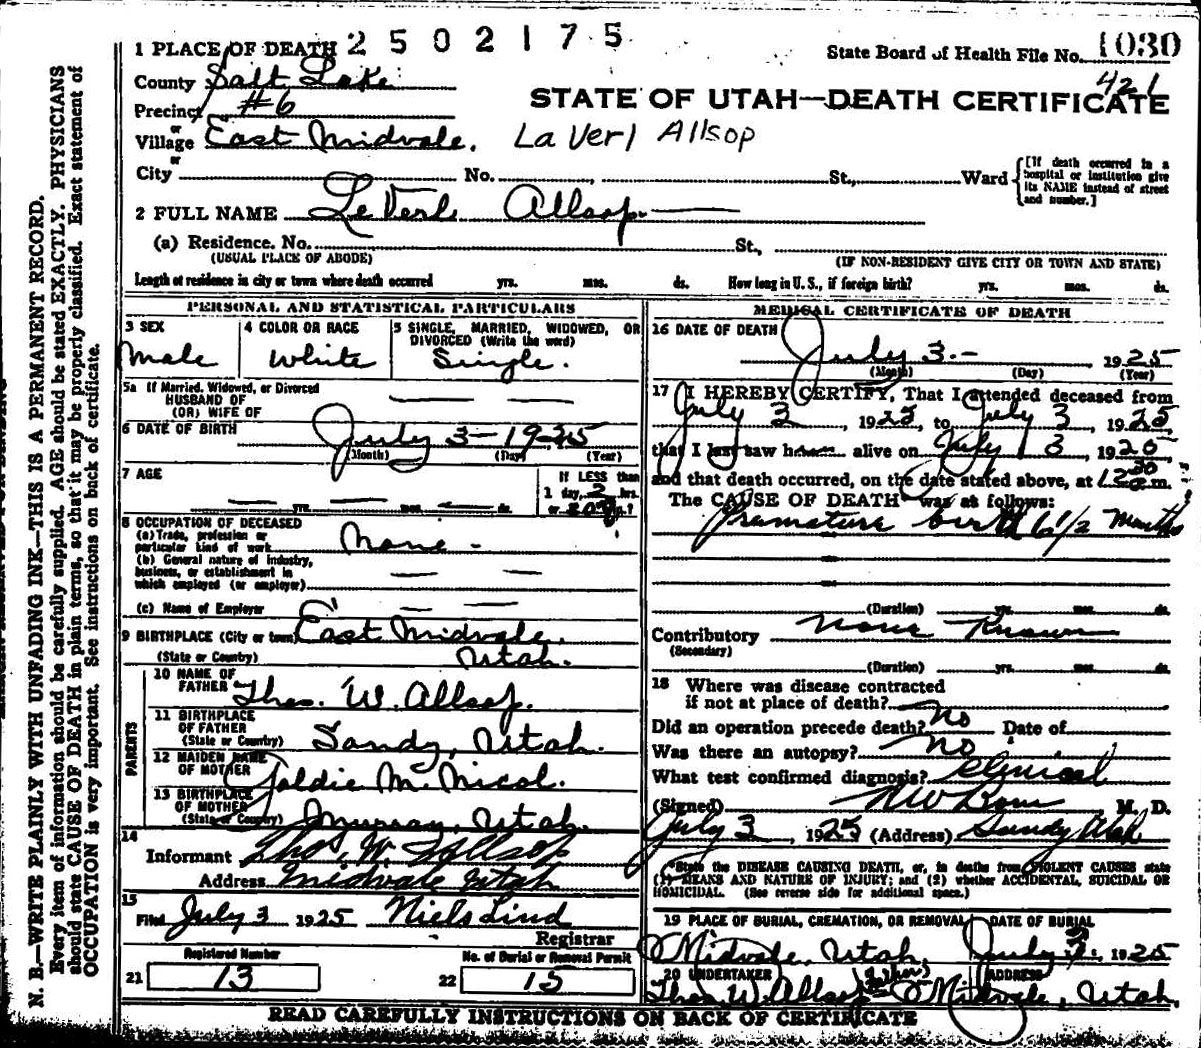 1 PLACE OF DEATH 2 5 0 2 1 7 5
State Board of Health File No. 1030
County Salt Lake
421
Precinct #6
STATE OF UTAH—DEATH CERTIFICATE
or
Village East Midvale. La Verl Allsop
or
City No. St., Ward
[If death occurred in a hospital or institution give its NAME instead of street and number.]
2 FULL NAME LeVerl Allsop.
(a) Residence. No. St.,
(USUAL PLACE OF ABODE) (IF NON-RESIDENT GIVE CITY OR TOWN AND STATE)
Length of residence in city or town where death occurred yrs. mos. ds. How long in U. S., if foreign birth? yrs. mos. ds.
PERSONAL AND STATISTICAL PARTICULARS
3 SEX 4 COLOR OR RACE 5 SINGLE, MARRIED, WIDOWED, OR
DIVORCED (Write the word)
Male White Single.
5a If Married, Widowed, or Divorced
HUSBAND OF
(OR) WIFE OF
6 DATE OF BIRTH July 3-1925
(Month) (Day) (Year)
7 AGE
If LESS than
1 day, 2 hrs.
yrs. mos. ds. or
8 OCCUPATION OF DECEASED
(a) Trade, profession or
particular kind of work None -
(b) General nature of industry,
business, or establishment in
which employed (or employer)
(c) Name of Employer
9 BIRTHPLACE (City or town) East Midvale.
(State or Country) Utah.
PARENTS
10 NAME OF
FATHER Thos. W. Allsop.
11 BIRTHPLACE
OF FATHER
(State or Country) Sandy, Utah.
12 MAIDEN NAME
OF MOTHER Goldie M. Nicol.
13 BIRTHPLACE
OF MOTHER
(State or Country) Murray, Utah.
14
Informant Thos. W. Allsop
Address Midvale Utah
15
Filed July 3 1925 Niels Lind
Registrar
Registered Number No. of Burial or Removal Permit
21 13 22 15
MEDICAL CERTIFICATE OF DEATH
16 DATE OF DEATH
July 3.- 1925
(Month) (Day) (Year)
17 I HEREBY CERTIFY, That I attended deceased from
July 3, 1925, to July 3, 1925,
that I last saw him alive on July 3, 1925
and that death occurred, on the date stated above, at 12 30 m.
The CAUSE OF DEATH was as follows:
Premature birth 6 1/2 months
(Duration) yrs. mos. ds.
Contributory None Known
(Secondary)
(Duration) yrs. mos. ds.
18 Where was disease contracted
if not at place of death?
Did an operation precede death? No Date of
Was there an autopsy? No
What test confirmed diagnosis? Clinical
(Signed) M. D.
July 3, 1925 (Address) Sandy Utah
*State the DISEASE CAUSING DEATH, or, in deaths from VIOLENT CAUSES state
(1) MEANS AND NATURE OF INJURY; and (2) whether ACCIDENTAL, SUICIDAL OR
HOMICIDAL. (See reverse side for additional space.)
19 PLACE OF BURIAL, CREMATION, OR REMOVAL DATE OF BURIAL
Midvale, Utah, July 3, 1925
20 UNDERTAKER ADDRESS
Thos. W. Allsop (Father) Midvale, Utah.
READ CAREFULLY INSTRUCTIONS ON BACK OF CERTIFICATE
N. B.—WRITE PLAINLY WITH UNFADING INK—THIS IS A PERMANENT RECORD.
Every item of information should be carefully supplied. AGE should be stated EXACTLY. PHYSICIANS
should state CAUSE OF DEATH in plain terms, so that it may be properly classified. Exact statement of
OCCUPATION is very important. See instructions on back of certificate.